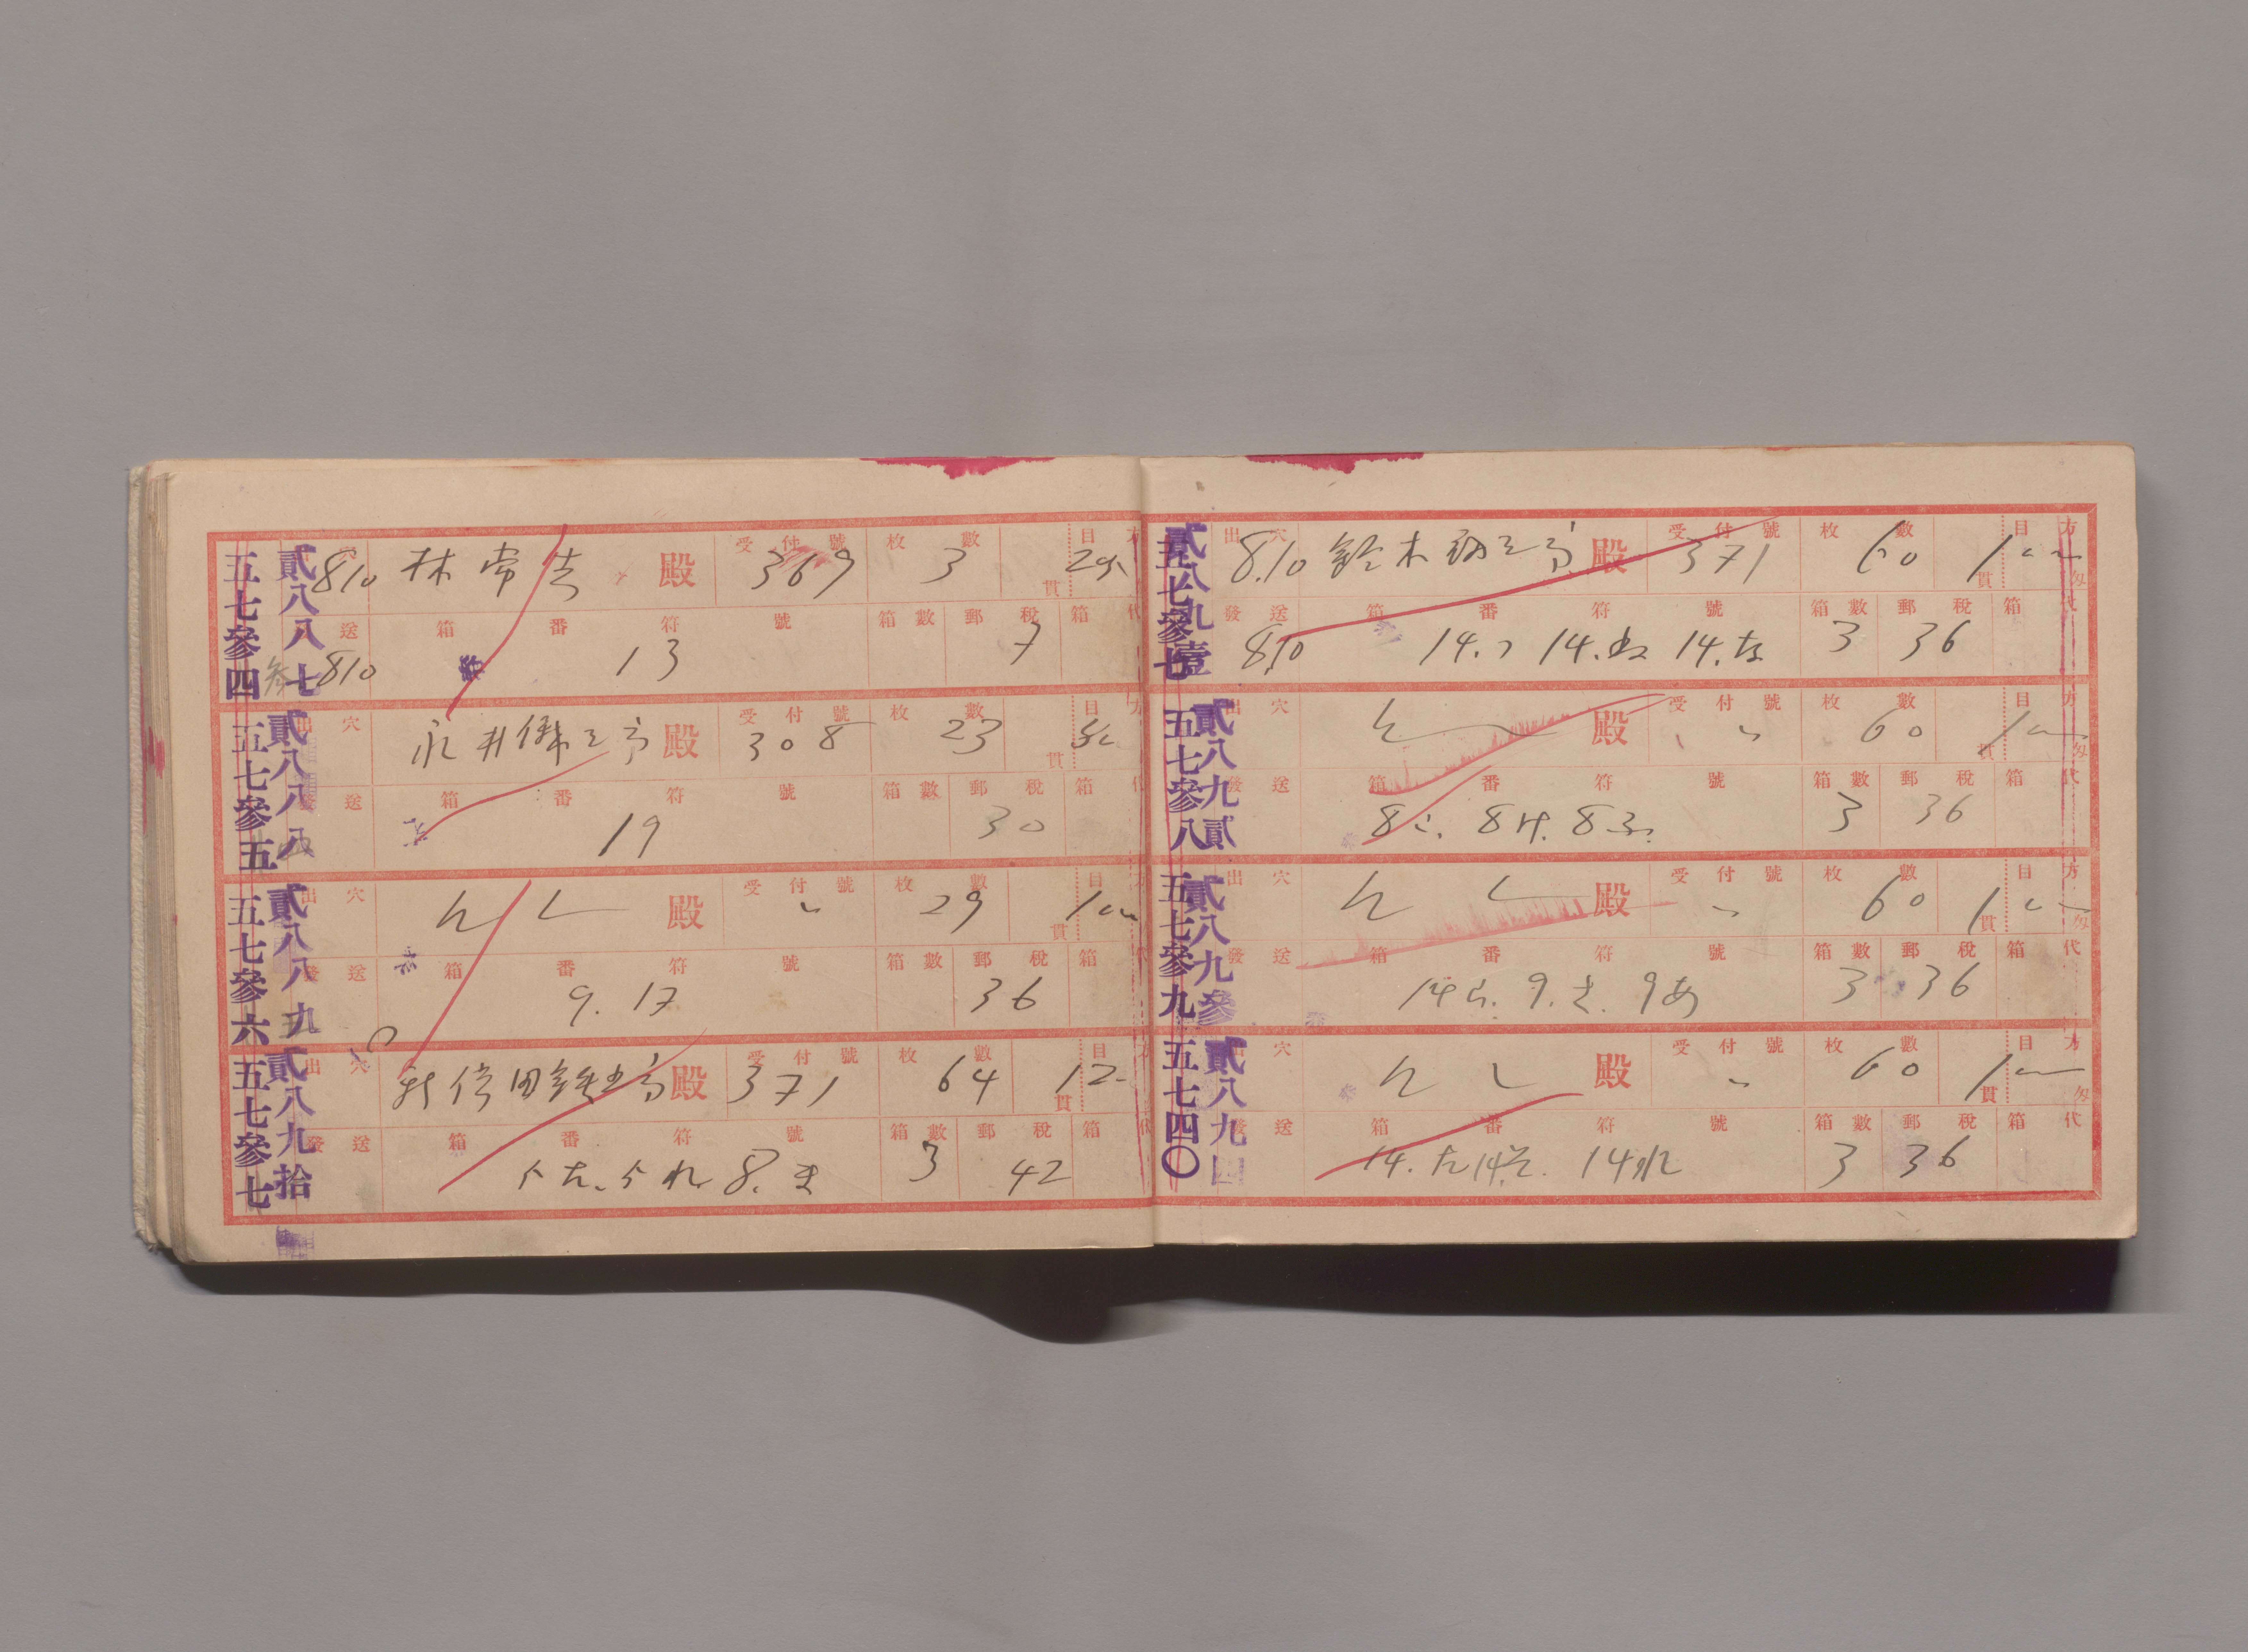 五七參四 貳八八七
出 穴 受付號 枚數 目方
810 林常吉 殿 369 3 貫
發送 箱番符號 箱數 郵稅 箱代
810 13 7
五七參五 貳八八八
出 穴 受付號 枚數 目方
永井 殿 308 23 貫
發送 箱番符號 箱數 郵稅 箱代
19 30
五七參六 貳八八九
出 穴 受付號 枚數 目方
殿 〃 29 貫
發送 箱番符號 箱數 郵稅 箱代
9. 17 36
五七參七 貳八九拾
出 穴 受付號 枚數 目方
田 殿 371 64 貫
發送 箱番符號 箱數 郵稅 箱代
8.ま 3 42
五七參七 貳八九壹
出 穴 受付號 枚數 目方
8.10 鈴木 殿 371 60 貫 匁
發送 箱番符號 箱數 郵稅 箱代
8.10 14.つ 14.ぬ 14.な 3 36
五七參八 貳八九貳
出 穴 受付號 枚數 目方
殿 〃 60 貫 匁
發送 箱番符號 箱數 郵稅 箱代
8こ. 8け. 8ふ. 3 36
五七參九 貳八九參
出 穴 受付號 枚數 目方
殿 〃 60 貫 匁
發送 箱番符號 箱數 郵稅 箱代
14ら. 9.き 9あ 3 36
五七四〇 貳八九四
出 穴 受付號 枚數 目方
殿 〃 60 貫 匁
發送 箱番符號 箱數 郵稅 箱代
14.た 14.そ. 14れ 3 36